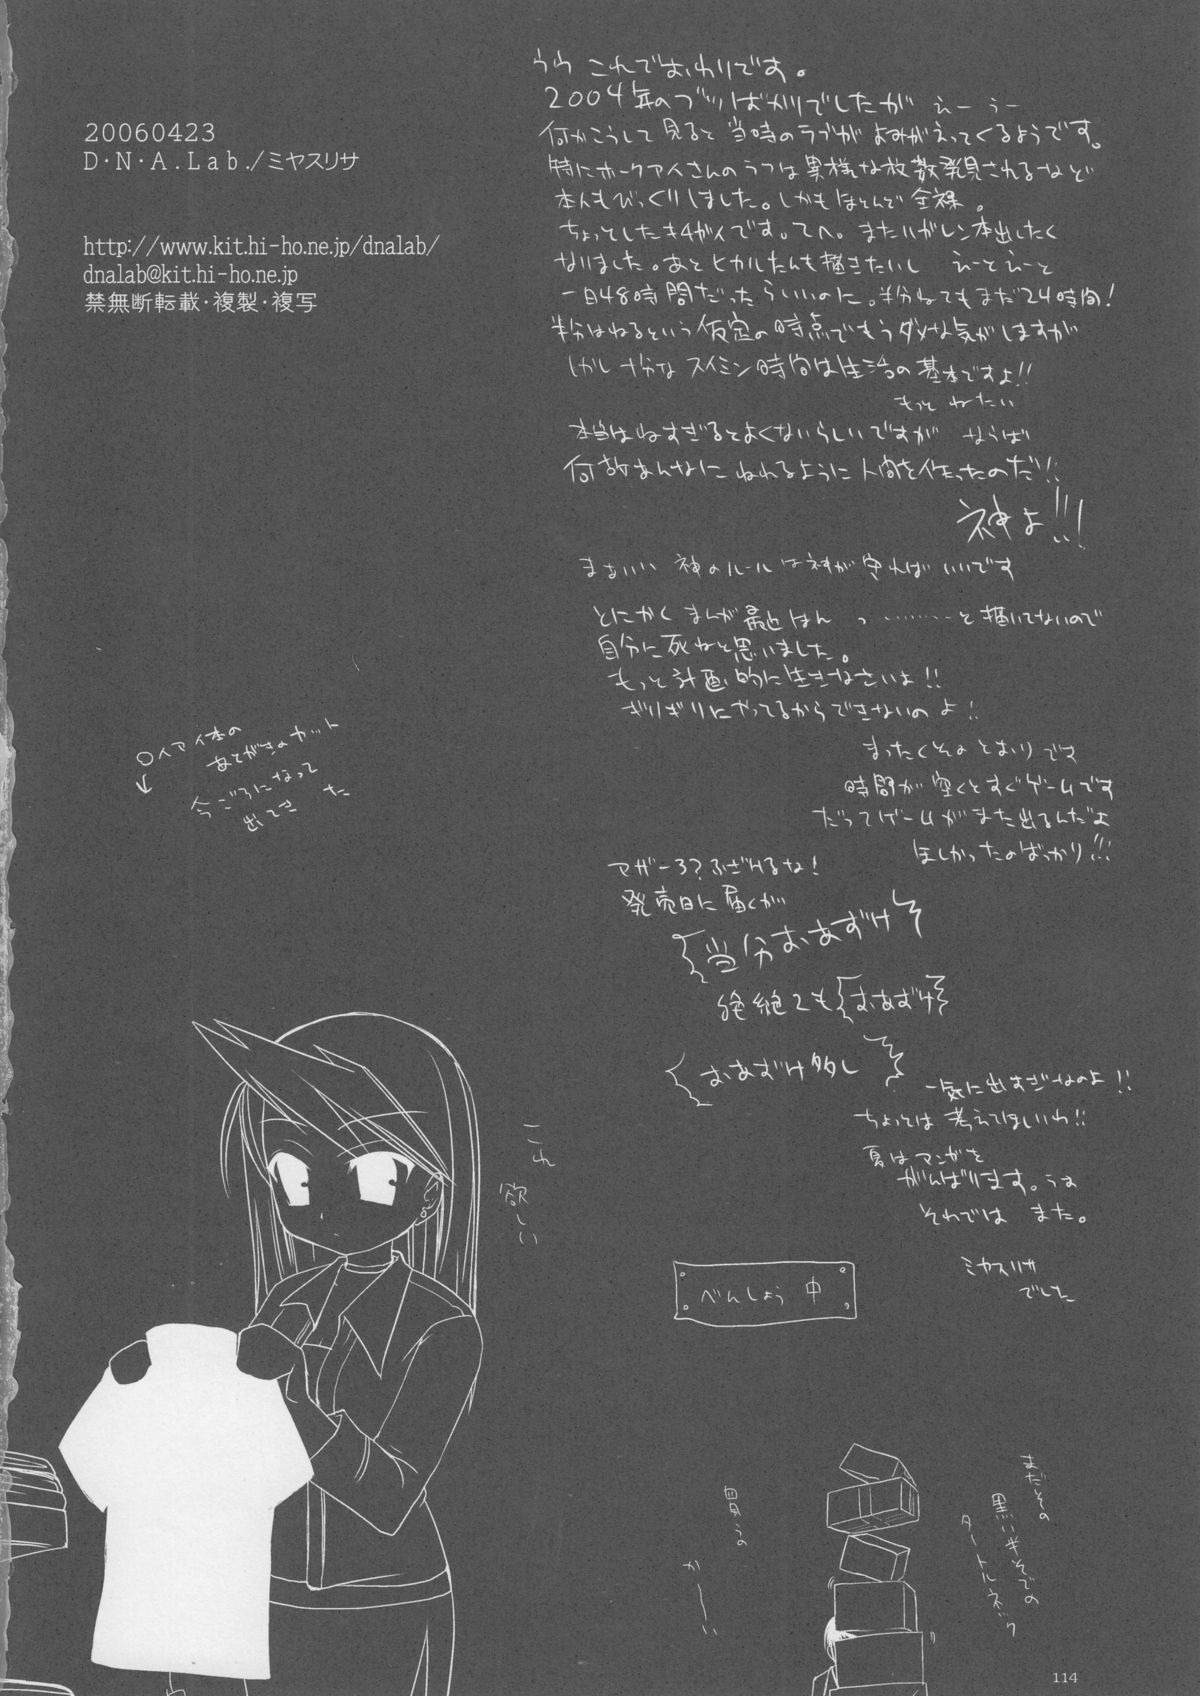 20060423
D・N・A.Lab./ミヤスリサ
http://www.kit.hi-ho.ne.jp/dnalab/
dnalab@kit.hi-ho.ne.jp
禁無断転載・複製・複写
うう これでおわりです。
2004年のブツばかりでしたが えー うー
何かこうして見ると当時のラブがよみがえってくるようです。
特にホークアイさんのラフは異様な枚数発見されるなど
本人もびっくりしました。しかもほとんど全裸。
ちょっとしたキチガイです。てへ。またハガレン本出したく
なりました。あとヒカルたんも描きたいし えーとえーと
一日48時間だったらいいのに。半分ねてもまだ24時間!
半分はねるという仮定の時点でもうダメな気がしますが
しかし十分なスイミン時間は生活の基本ですよ!!
もっと ねたい
本当はねすぎるとよくないらしいですが ならば
何故あんなにねれるように人間を作ったのだ!!
神よ!!!
まあいい 神のルールは神が守ればいいです
とにかく まんが最近はんっ………と描いてないので
自分に死ねと思いました。
もっと計画的に生きなさいよ!!
ぎりぎりにやってるからできないのよ!!
まったくそのとおりです
時間が空くとすぐゲームです
だってゲームがまた出るんだよ
ほしかったのばっかり!!!
マザー3?ふざけるな!
発売日に届くが
当分おあずけ
絶絶ても おあずけ
おあずけ多し
一気に出すぎなのよ!!
ちょっとは考えてほしいわ!!
夏はマンガを
がんばります。うぉ
それでは また。
ミヤスリサ
でした
○イアイ本の
あとがきのカット
今ごろになって
出てきた
これ
欲しい
べんしょう中
買うの
かーい
まだその
黒い半そでの
タートルネック
114